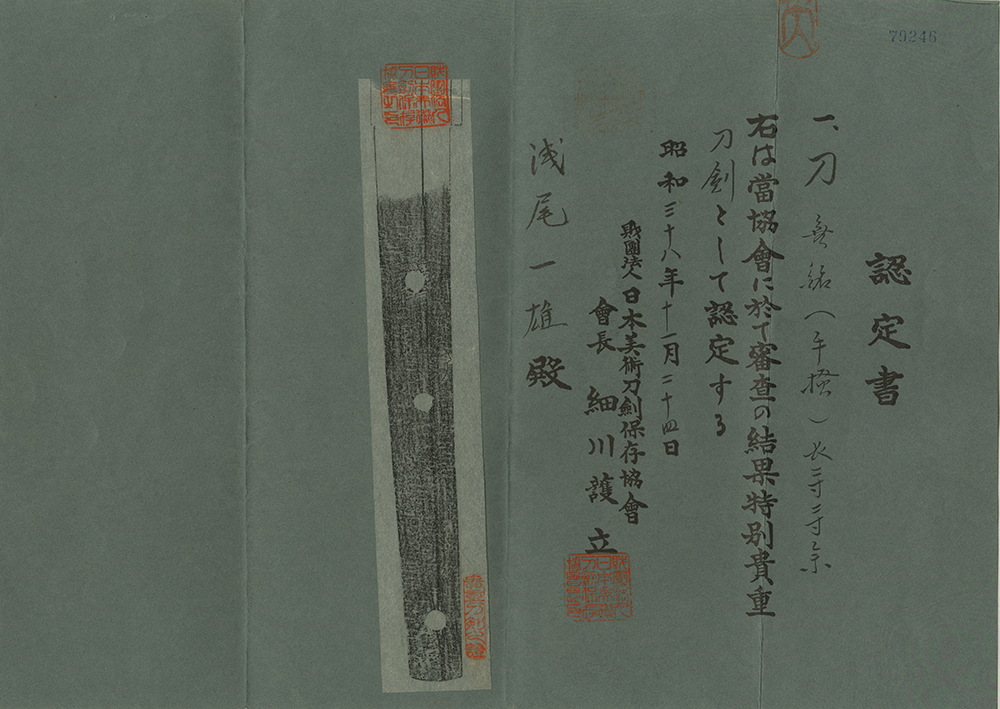 79246
認定書
一、刀 無銘(手掻)長
右は當協會に於て審査の結果特別貴重
刀剣として認定する
昭和三十八年十一月二十四日
財團法人日本美術刀劍保存協會
會長 細川護立
浅尾一雄殿